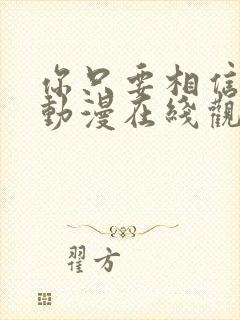 你只要相信
動漫在綫觀
翟方